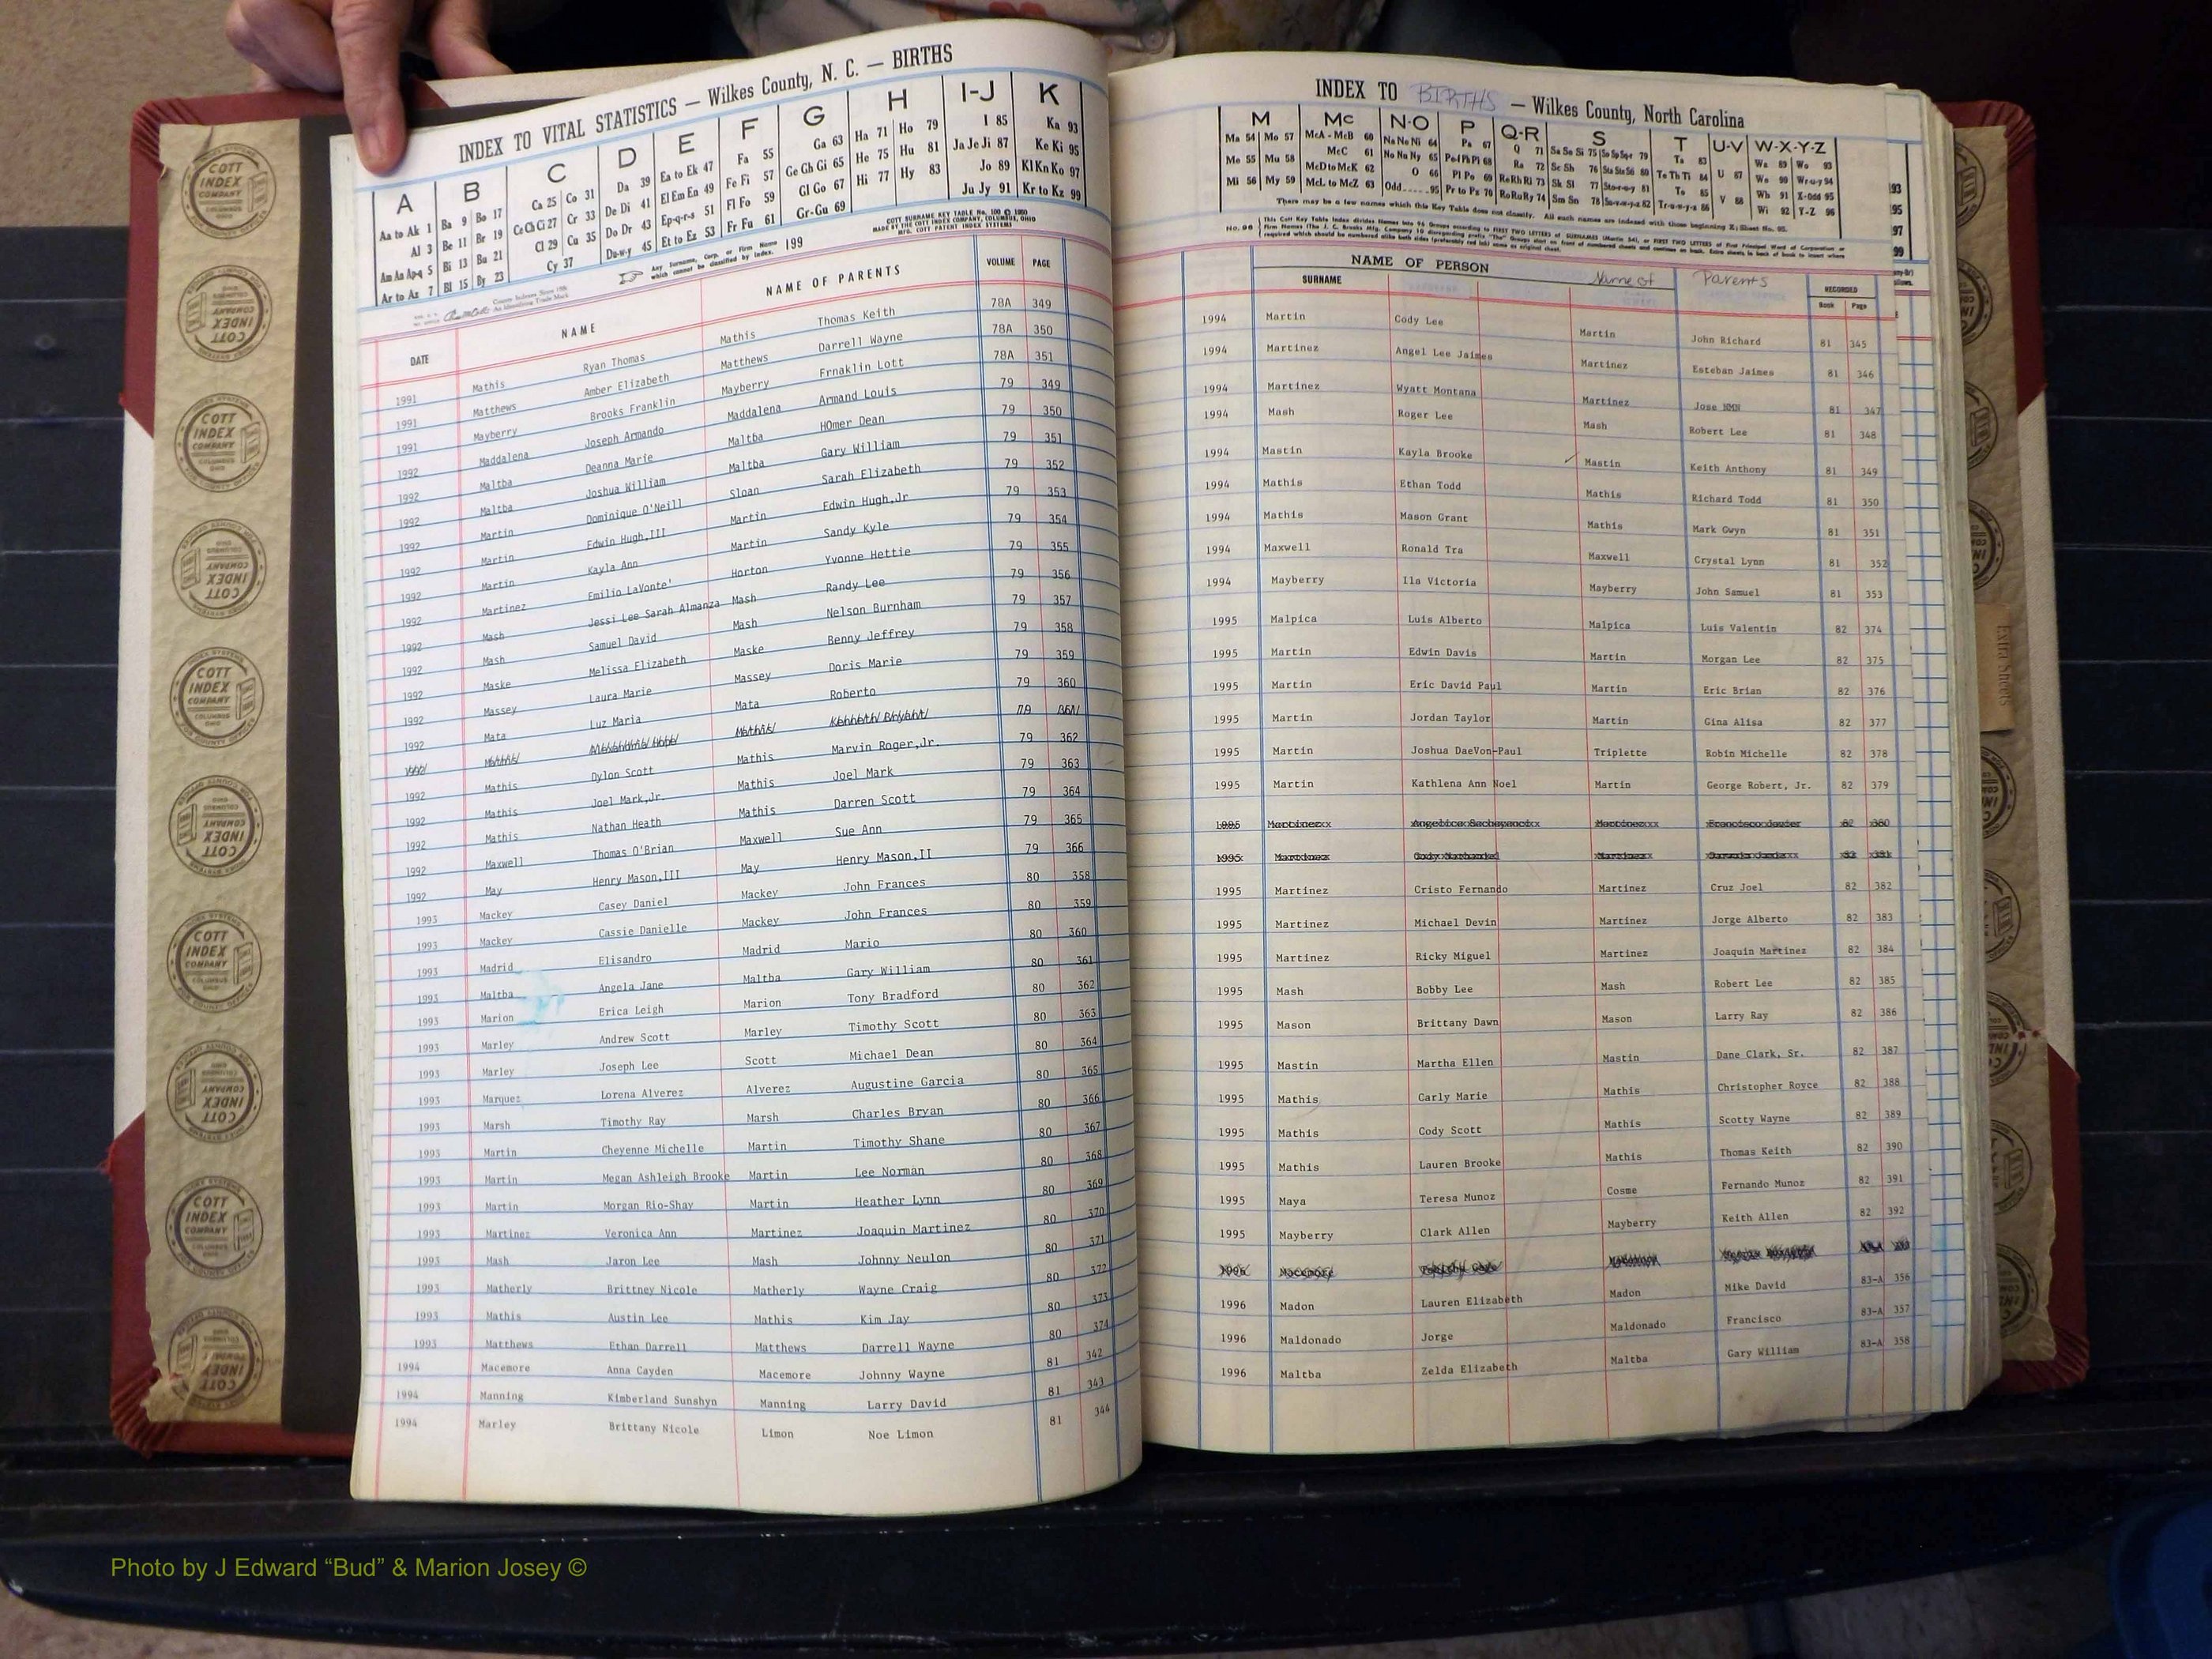 INDEX TO VITAL STATISTICS — Wilkes County, N. C. — BIRTHS
A B C D E F G H I-J K
Aa to Ak 1 Ba 9 Bo 17 Ca 25 Co 31 Da 39 Ea to Ek 47 Fa 55 Ga 63 Ha 71 Ho 79 I 85 Ka 93
Al 3 Be 11 Br 19 Ce Ch Ci 27 Cr 33 De Di 41 El Em En 49 Fe Fi 57 Ge Gh Gi 65 He 75 Hu 81 Ja Je Ji 87 Ke Ki 95
Am An Ap-q 5 Bi 13 Bu 21 Cl 29 Cu 35 Do Dr 43 Ep-q-r-s 51 Fl Fo 59 Gl Go 67 Hi 77 Hy 83 Jo 89 Kl Kn Ko 97
Ar to Az 7 Bl 15 By 23 Cy 37 Du-w-y 45 Et to Ez 53 Fr Fu 61 Gr-Gu 69 Ju Jy 91 Kr to Kz 99
Any Surname, Corp. or Firm Name which cannot be classified by Index. 199
COTT SURNAME KEY TABLE No. 100
MADE BY THE COTT INDEX COMPANY, COLUMBUS, OHIO
MFG. COTT PATENT INDEX SYSTEMS
DATE NAME NAME OF PARENTS VOLUME PAGE
1991 Mathis Ryan Thomas Mathis Thomas Keith 78A 349
1991 Matthews Amber Elizabeth Matthews Darrell Wayne 78A 350
1991 Mayberry Brooks Franklin Mayberry Frnaklin Lott 78A 351
1992 Maddalena Joseph Armando Maddalena Armand Louis 79 349
1992 Maltba Deanna Marie Maltba HOmer Dean 79 350
1992 Maltba Joshua William Maltba Gary William 79 351
1992 Martin Dominique O'Neill Sloan Sarah Elizabeth 79 352
1992 Martin Edwin Hugh,III Martin Edwin Hugh,Jr 79 353
1992 Martin Kayla Ann Martin Sandy Kyle 79 354
1992 Martinez Emilio LaVonte' Horton Yvonne Hettie 79 355
1992 Mash Jessi Lee Sarah Almanza Mash Randy Lee 79 356
1992 Mash Samuel David Mash Nelson Burnham 79 357
1992 Maske Melissa Elizabeth Maske Benny Jeffrey 79 358
1992 Massey Laura Marie Massey Doris Marie 79 359
1992 Mata Luz Maria Mata Roberto 79 360
1992 Mathis Dylon Scott Mathis Marvin Roger,Jr. 79 362
1992 Mathis Joel Mark,Jr. Mathis Joel Mark 79 363
1992 Mathis Nathan Heath Mathis Darren Scott 79 364
1992 Maxwell Thomas O'Brian Maxwell Sue Ann 79 365
1992 May Henry Mason,III May Henry Mason,II 79 366
1993 Mackey Casey Daniel Mackey John Frances 80 358
1993 Mackey Cassie Danielle Mackey John Frances 80 359
1993 Madrid Elisandro Madrid Mario 80 360
1993 Maltba Angela Jane Maltba Gary William 80 361
1993 Marion Erica Leigh Marion Tony Bradford 80 362
1993 Marley Andrew Scott Marley Timothy Scott 80 363
1993 Marley Joseph Lee Scott Michael Dean 80 364
1993 Marquez Lorena Alverez Alverez Augustine Garcia 80 365
1993 Marsh Timothy Ray Marsh Charles Bryan 80 366
1993 Martin Cheyenne Michelle Martin Timothy Shane 80 367
1993 Martin Megan Ashleigh Brooke Martin Lee Norman 80 368
1993 Martin Morgan Rio-Shay Martin Heather Lynn 80 369
1993 Martinez Veronica Ann Martinez Joaquin Martinez 80 370
1993 Mash Jaron Lee Mash Johnny Neulon 80 371
1993 Matherly Brittney Nicole Matherly Wayne Craig 80 372
1993 Mathis Austin Lee Mathis Kim Jay 80 373
1993 Matthews Ethan Darrell Matthews Darrell Wayne 80 374
1994 Macemore Anna Cayden Macemore Johnny Wayne 81 342
1994 Manning Kimberland Sunshyn Manning Larry David 81 343
1994 Marley Brittany Nicole Limon Noe Limon 81 344
INDEX TO BIRTHS — Wilkes County, North Carolina
M Mc N-O P Q-R S T U-V W-X-Y-Z
Ma 54 Mo 57 McA - McB 60 Na Ne Ni 64 Pa 67 Q 71 Sa Se Si 75 So Sp Sq-r 79 Ta 83 Wa 89 Wo 93
Me 55 Mu 58 McC 61 Na No Ny 65 Pe-f Ph Pi 68 Ra 72 Sc Sh 76 Sta Ste Se 80 Te Th Ti 84 U 87 We 90 Wr-u-y 94
Mi 56 My 59 McD to McK 62 O 66 Pl Po 69 Re Rh Ri 73 Sk Sl 77 Sto-r-u-y 81 To 85 V 88 Wh 91 X-odd 95
McL to McZ 63 Odd 95 Pr to Ps 70 Ro Ru Ry 74 Sm Sn 78 Su-v-w-y-z 82 Tr-u-w-y-z 86 Wi 92 Y-Z 96
There may be a few names which this Key Table does not classify. All such names are indexed with those beginning Z; Sheet No. 95.
193
195
197
199
NAME OF PERSON Name of Parents RECORDED
SURNAME Book Page
1994 Martin Cody Lee Martin John Richard 81 345
1994 Martinez Angel Lee Jaimes Martinez Esteban Jaimes 81 346
1994 Martinez Wyatt Montana Martinez Jose NMN 81 347
1994 Mash Roger Lee Mash Robert Lee 81 348
1994 Mastin Kayla Brooke Mastin Keith Anthony 81 349
1994 Mathis Ethan Todd Mathis Richard Todd 81 350
1994 Mathis Mason Grant Mathis Mark Gwyn 81 351
1994 Maxwell Ronald Tra Maxwell Crystal Lynn 81 352
1994 Mayberry Ila Victoria Mayberry John Samuel 81 353
1995 Malpica Luis Alberto Malpica Luis Valentin 82 374
1995 Martin Edwin Davis Martin Morgan Lee 82 375
1995 Martin Eric David Paul Martin Eric Brian 82 376
1995 Martin Jordan Taylor Martin Gina Alisa 82 377
1995 Martin Joshua DaeVon-Paul Triplette Robin Michelle 82 378
1995 Martin Kathlena Ann Noel Martin George Robert, Jr. 82 379
1995 Martinez Cristo Fernando Martinez Cruz Joel 82 382
1995 Martinez Michael Devin Martinez Jorge Alberto 82 383
1995 Martinez Ricky Miguel Martinez Joaquin Martinez 82 384
1995 Mash Bobby Lee Mash Robert Lee 82 385
1995 Mason Brittany Dawn Mason Larry Ray 82 386
1995 Mastin Martha Ellen Mastin Dane Clark, Sr. 82 387
1995 Mathis Carly Marie Mathis Christopher Royce 82 388
1995 Mathis Cody Scott Mathis Scotty Wayne 82 389
1995 Mathis Lauren Brooke Mathis Thomas Keith 82 390
1995 Maya Teresa Munoz Cosme Fernando Munoz 82 391
1995 Mayberry Clark Allen Mayberry Keith Allen 82 392
1996 Madon Lauren Elizabeth Madon Mike David 83-A 356
1996 Maldonado Jorge Maldonado Francisco 83-A 357
1996 Maltba Zelda Elizabeth Maltba Gary William 83-A 358
Extra Sheets
COTT INDEX COMPANY COLUMBUS OHIO
Photo by J Edward “Bud” & Marion Josey ©